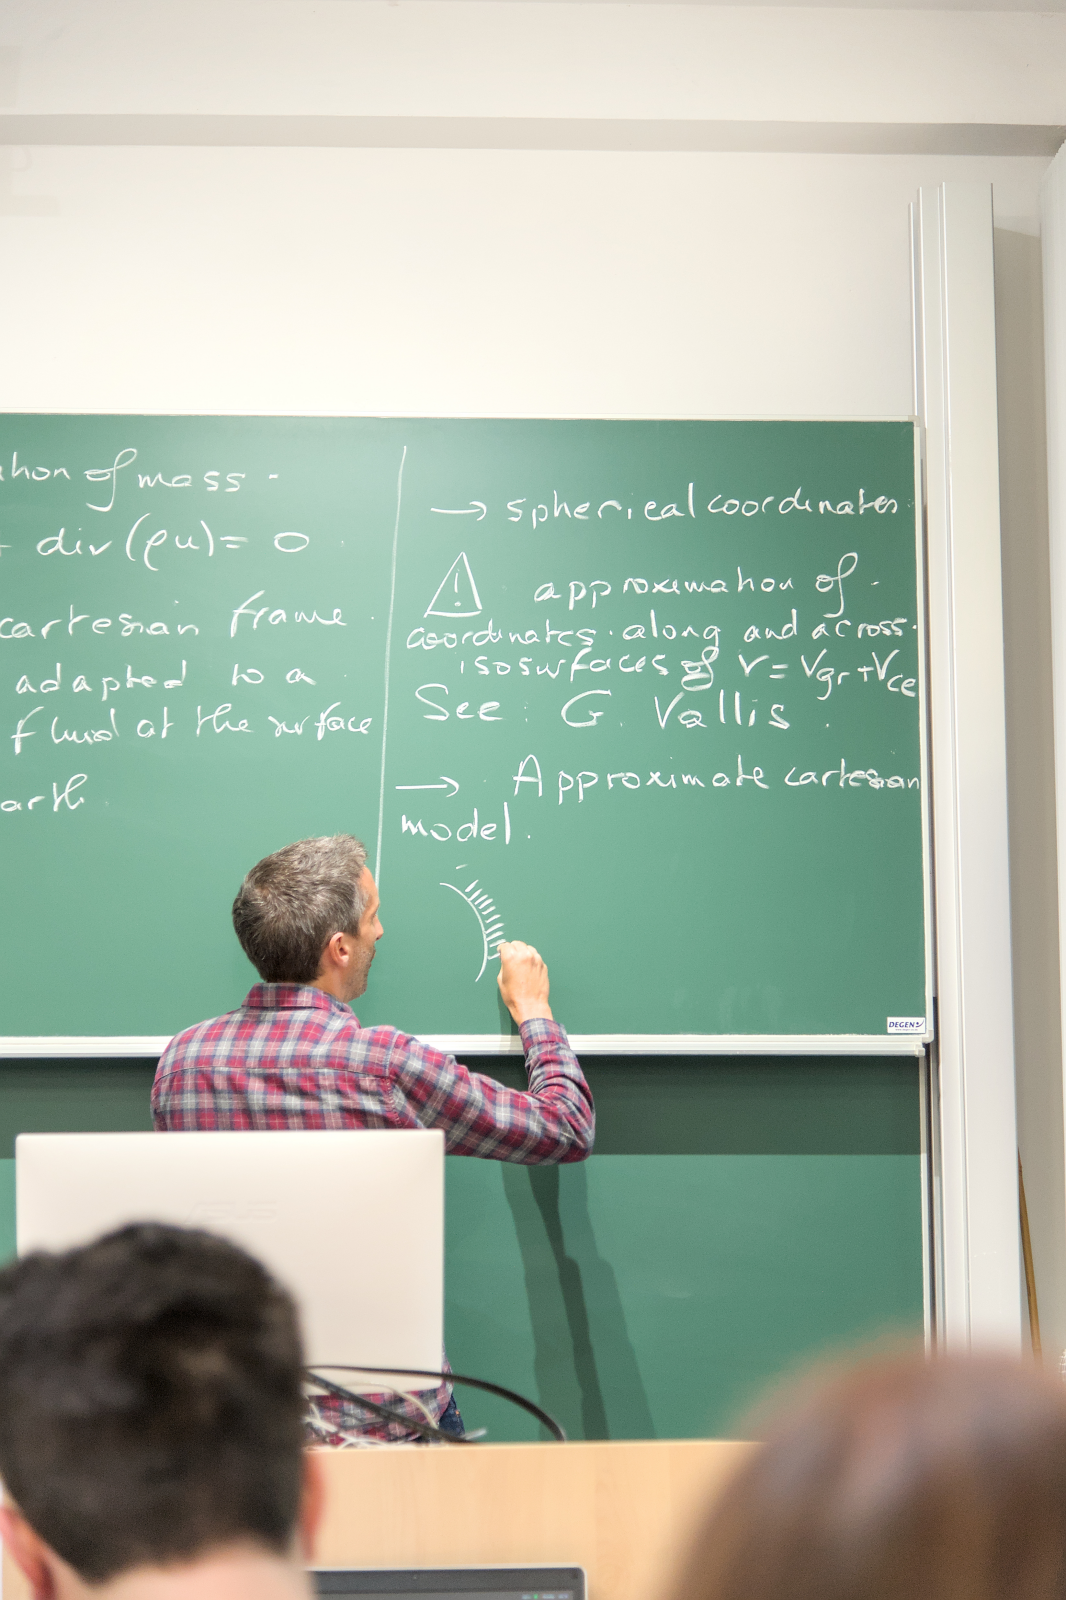 of mass.
div(ρu) = 0
cartesian frame
adapted to a
fluid at the surface
→ spherical coordinates
! approximation of
coordinates along and across
isosurfaces of V = Vgr + Vce
See: G. Vallis
→ Approximate cartesian
model.
DEGEN
ASUS